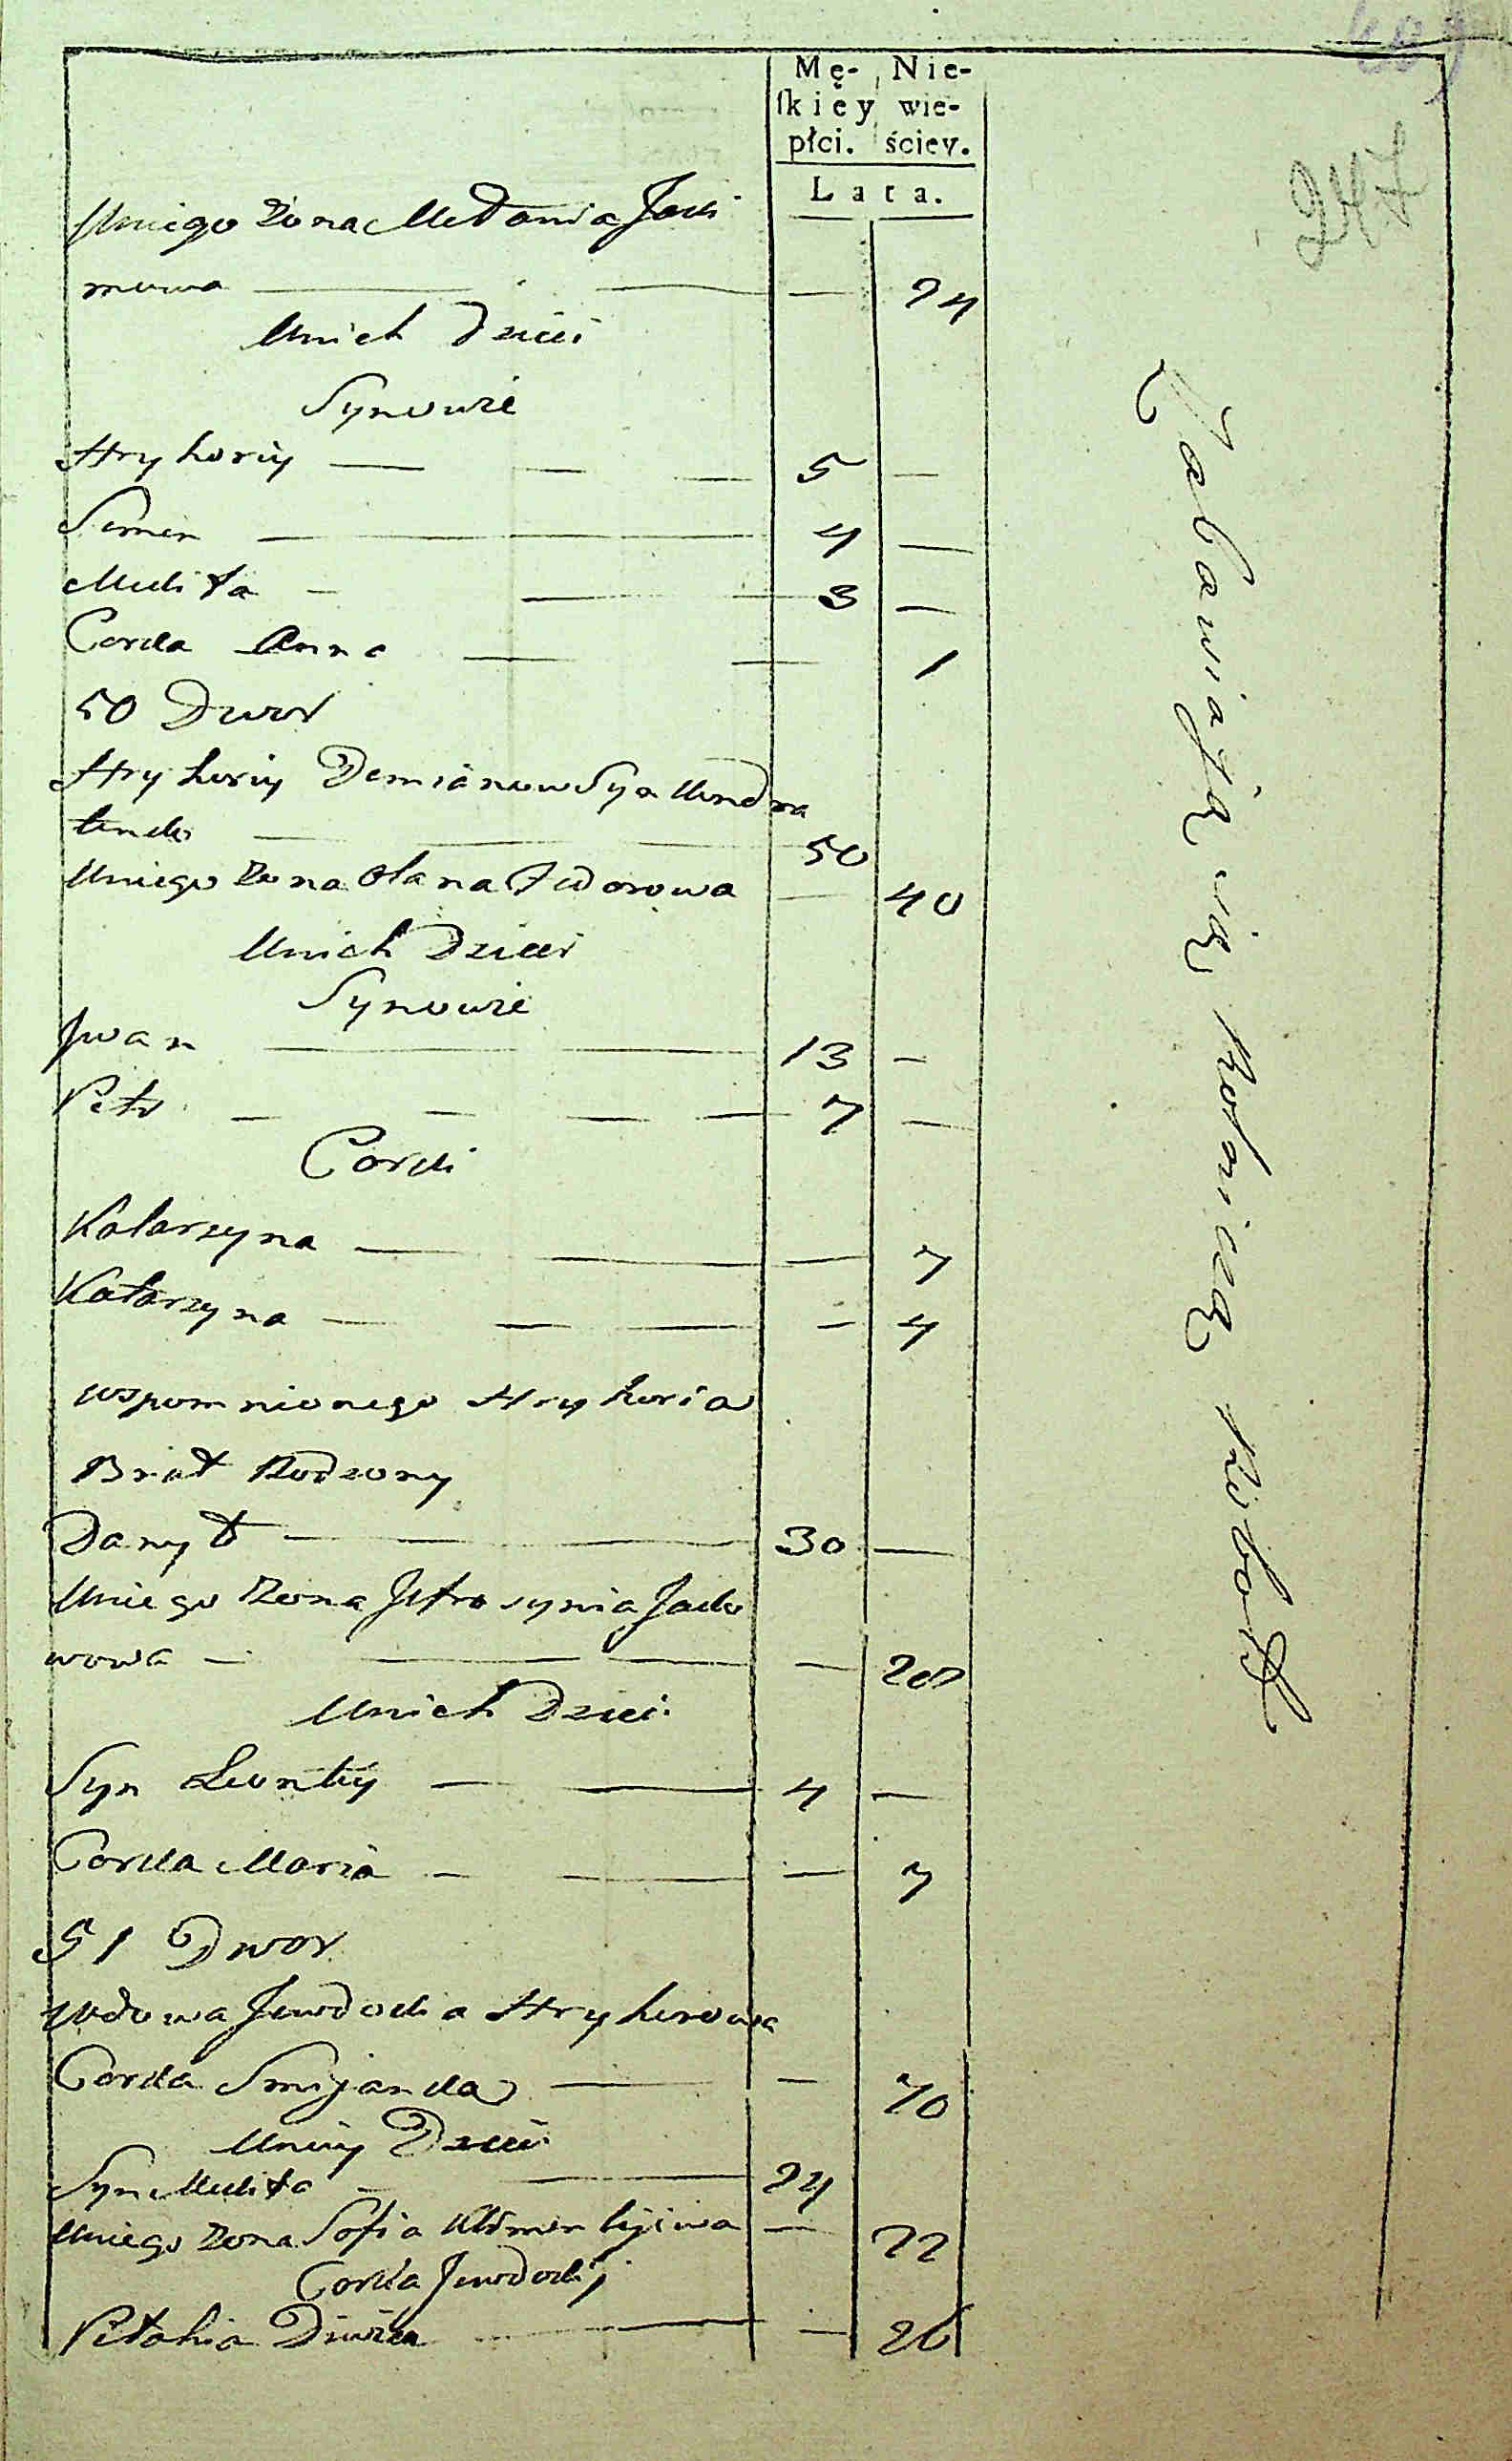 Mę- Nie-
ſkiey wie-
płci. ściey.
Lata.
247
Uniego Zona Mełania Jaki
mowa — — — 24
Unich Dzieci
Synowie
Hryhoriy — — — 5 —
Semen — — 4 —
Mikita — — 3 —
Corka Anna — — 1
50 Dwor
Hryhoriy Demianow Syn Kondra
tenko — — 50
Uniego Zona Olana Fedorowa — 40
Unich Dzieci
Synowie
Jwan — — 13 —
Petr — — — — 7 —
Corki
Katarzyna — — — 7
Katarzyna — — — — 4
wspomnionego Hryhoria
Brat Rodzony
Danyło — — — 30 —
Uniego Zona Jefrosynia Jako
wowa — — — — 28
Unich Dzieci
Syn Leontiy — — 4 —
Corka Maria — — — 7
51 Dwor
Wdowa Jewdokia Hryhorowa
Corka Smijanka — — 70
Uniey Dzieci
Syn Mikita — — 24
Uniego Zona Sofia Klimentijewa — 22
Corka Jewdokij
Pełahia Diwka — — — 26
Zabawiaią się Rolniczą Robotą